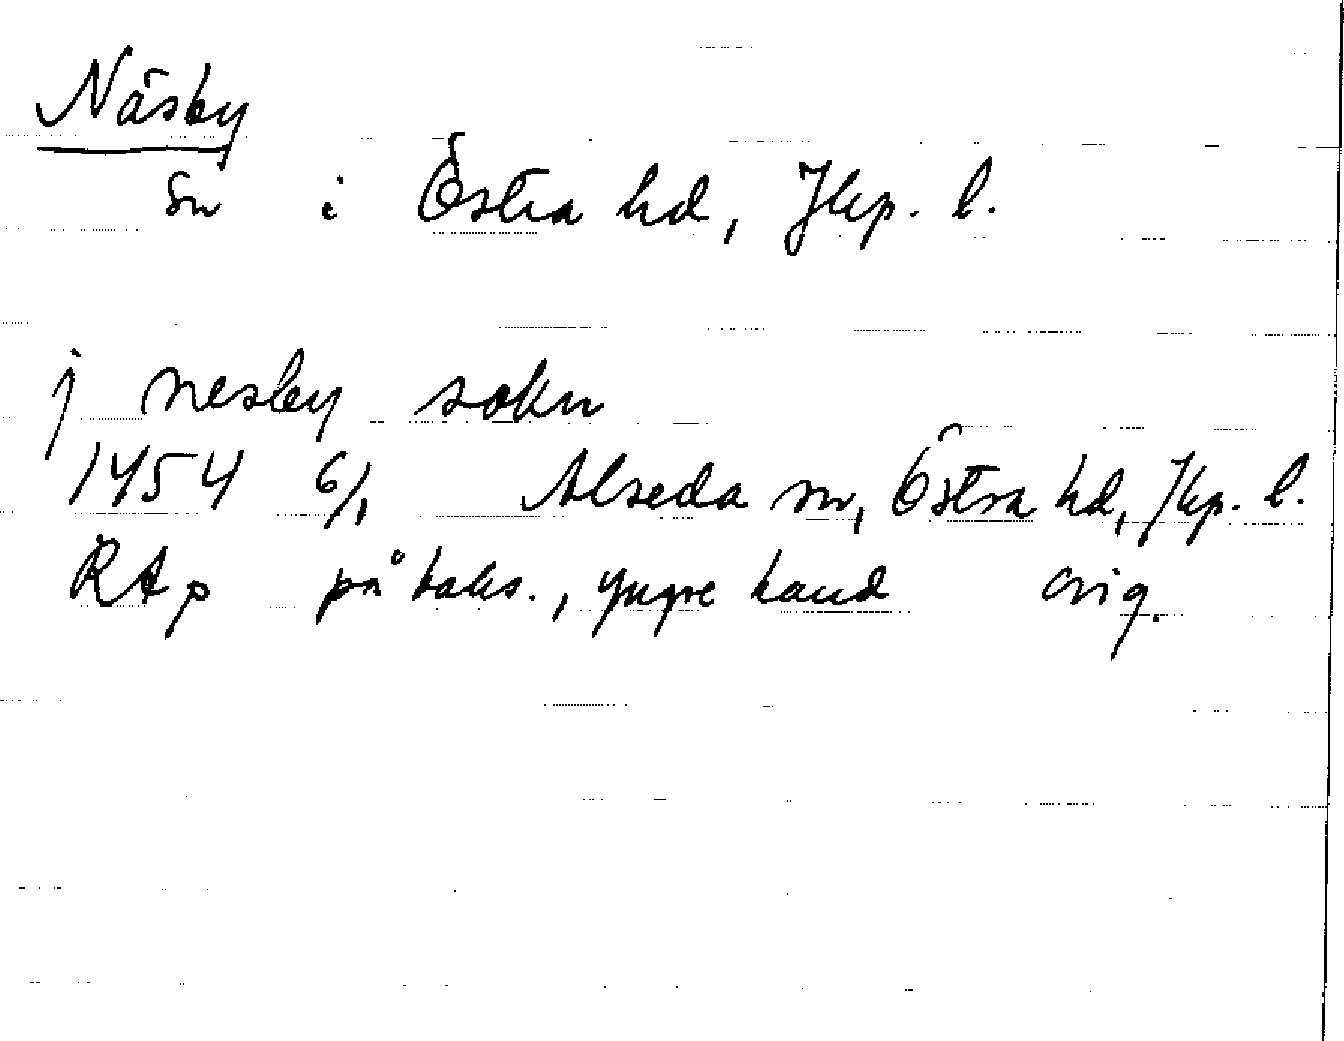 Näsby
Sn i Östra hd, Jkp. l.
j nesby sokn
1454 6/1 Alseda sn, Östra hd, Jkp. l.
RAp på baks., yngre hand orig.